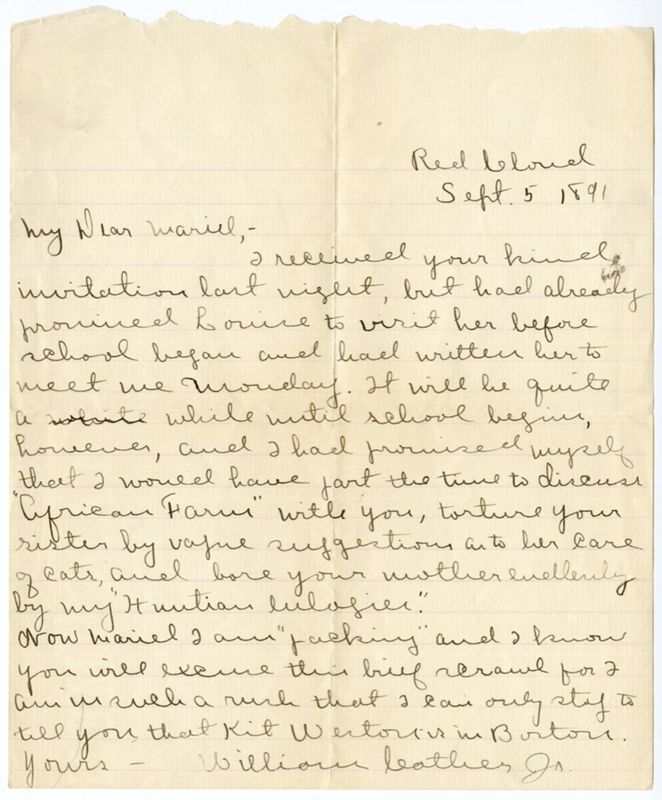 Red Cloud
Sept. 5 1891
My Dear Mariel,-
I received your kind
invitation last night, but had already
promised Louise to visit her before
school began and had written her to
meet me Monday. It will be quite
a while until school begins,
however, and I had promised myself
that I would have part the time to discuss
"African Farm" with you, torture your
sister by vague suggestions as to her care
of cats, and bore your mother endlessly
by my "Huntian eulogies".
Now Mariel I am "packing" and I know
you will excuse this brief scrawl for I
am in such a rush that I can only stop to
tell you that Kit Weston is in Boston.
Yours - William Cather Jr.